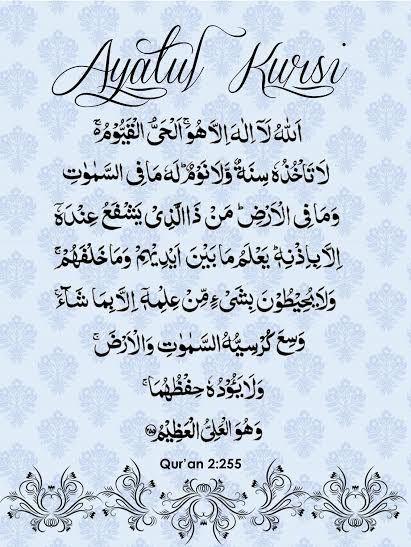 Ayatul Kursi
اَللّٰهُ لَآ اِلٰهَ اِلَّا هُوَ ۚ اَلْحَیُّ الْقَیُّوْمُ ۚ
لَا تَاْخُذُهٗ سِنَةٌ وَّلَا نَوْمٌ ؕ لَهٗ مَا فِی السَّمٰوٰتِ
وَمَا فِی الْاَرْضِ ؕ مَنْ ذَا الَّذِیْ یَشْفَعُ عِنْدَهٗۤ
اِلَّا بِاِذْنِهٖ ؕ یَعْلَمُ مَا بَیْنَ اَیْدِیْهِمْ وَمَا خَلْفَهُمْ ۚ
وَلَا یُحِیْطُوْنَ بِشَیْءٍ مِّنْ عِلْمِهٖۤ اِلَّا بِمَا شَآءَ ۚ
وَسِعَ كُرْسِیُّهُ السَّمٰوٰتِ وَالْاَرْضَ ۚ
وَلَا یَـُٔوْدُهٗ حِفْظُهُمَا ۚ
وَهُوَ الْعَلِیُّ الْعَظِیْمُ ﴿۲۵۵﴾
Qur'an 2:255